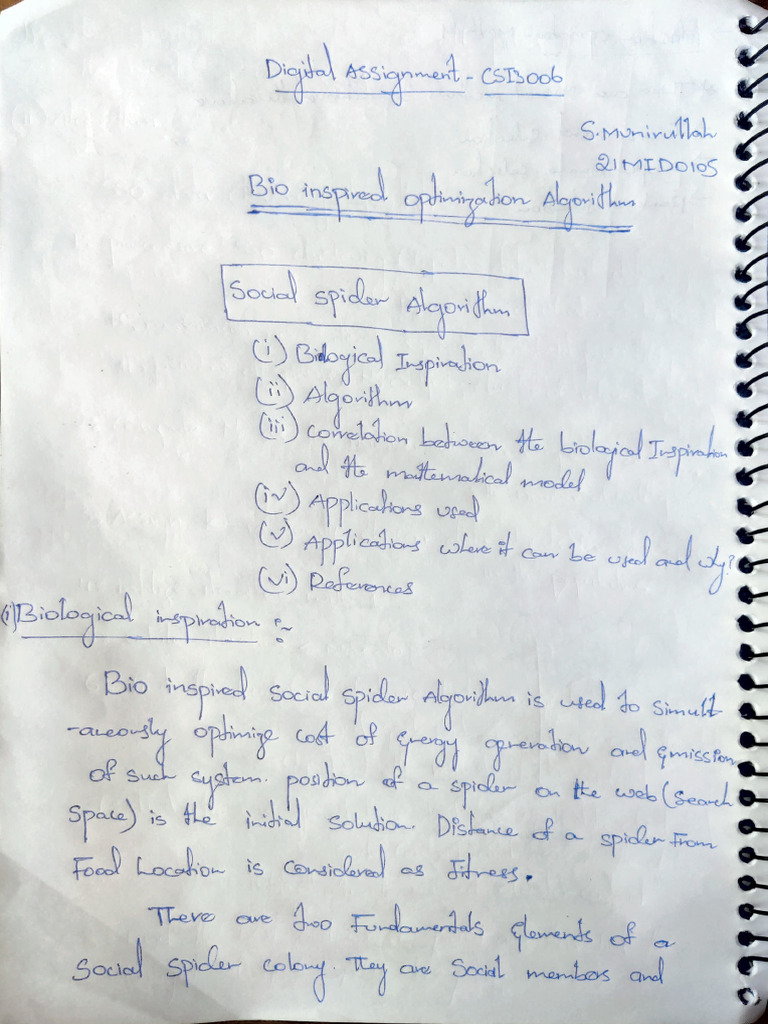 Digital Assignment - CSI3006
S. Munirullah
21MID0105
Bio inspired optimization Algorithm
Social spider Algorithm
(i) Biological Inspiration
(ii) Algorithm
(iii) correlation between the biological Inspiration
and the mathematical model
(iv) Applications used
(v) Applications where it can be used and why?
(vi) References
(i) Biological inspiration :~
Bio inspired social spider Algorithm is used to simult
-aneously optimize cost of Energy generation and Emission
of such system. position of a spider on the web (search
space) is the initial solution. Distance of a spider From
Food Location is considered as fitness.
There are two Fundamentals Elements of a
social spider colony. They are Social members and